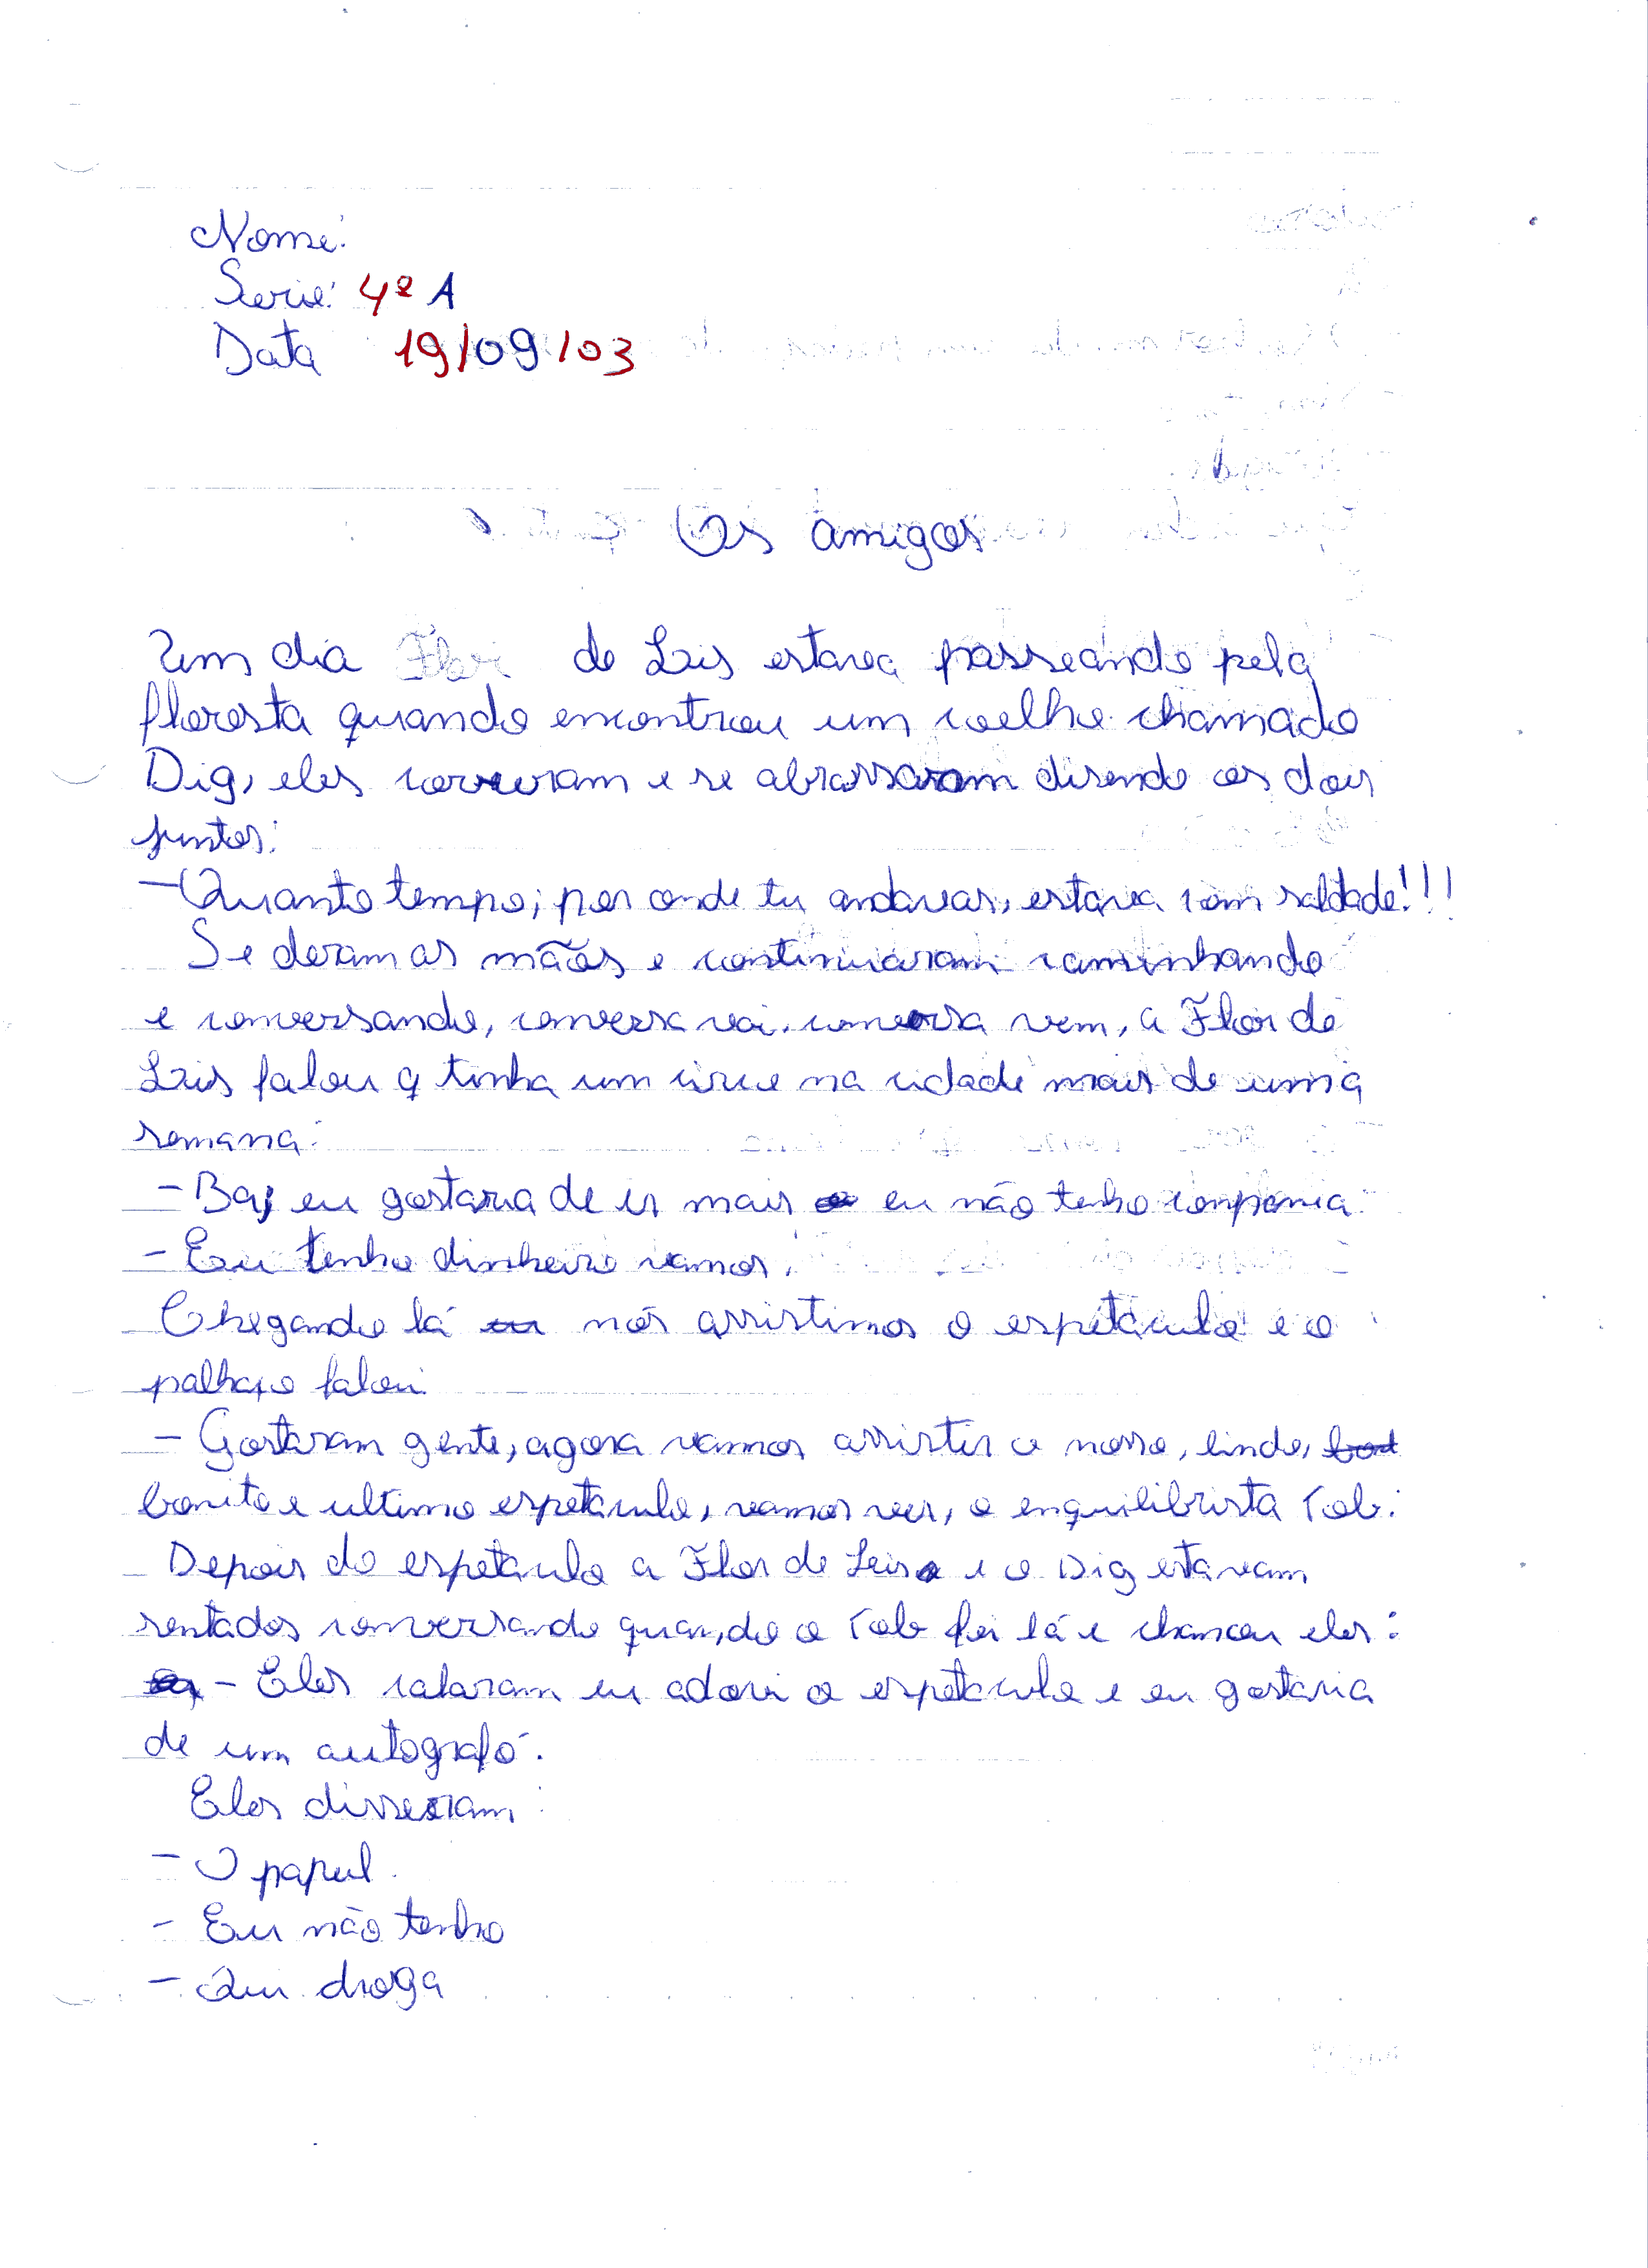 Nome:
Serie: 4ª A
Data 19/09/03
Os amigos
Um dia Flor de Lis estava passeando pela
floresta quando encontrou um coelho chamado
Dig, eles correram e se abrassaram disendo os dois
juntos:
-Quanto tempo, por onde tu andavas, estava com saldade!!!
Se deram as mãos e continuaram caminhando
e conversando, conversa vai. conversa vem, a Flor de
Lis falou q tinha um circo na cidade mais de uma
semana:
- Ba, eu gostaria de ir mais eu não tenho compania.
- Eu tenho dinheiro vamos.
Chegando lá nós assistimos o espetáculo e o
palhaço falou
- Gostaram gente, agora vamos assistir o nosso, lindo,
bonito e ultimo espetaculo, vamos ver, o enquilibrista Tob:
Depois do espetaculo a Flor de Leis e o Dig estavam
sentados conversando quando o Tob foi lá e chamou eles:
- Eles falaram eu adorei o espetaculo e eu gostaria
de um autografo.
Eles disseram:
- O papel.
- Eu não tenho
- Que droga